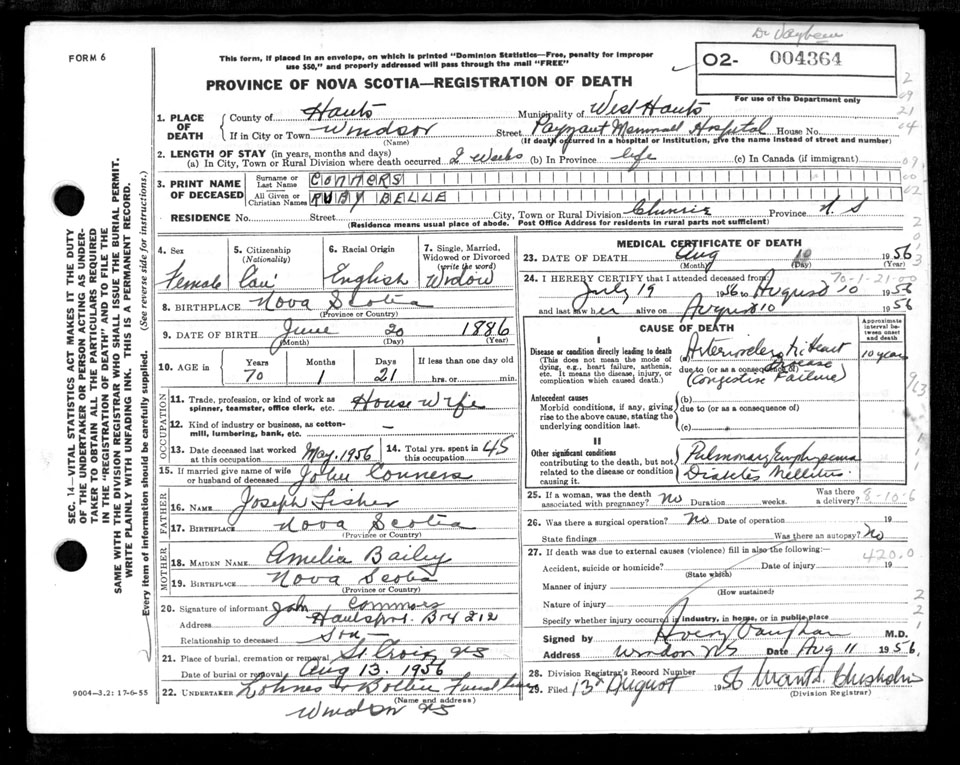 Dr Vaughan
FORM 6
This form, if placed in an envelope, on which is printed "Dominion Statistics—Free, penalty for improper
use $50," and properly addressed will pass through the mail "FREE"
02- 004364
For use of the Department only
PROVINCE OF NOVA SCOTIA—REGISTRATION OF DEATH
1. PLACE OF DEATH
County of Hants
Municipality of West Hants
If in City or Town Windsor
(Name)
Street Payzant Memorial Hospital House No.
(If death occurred in a hospital or institution, give the name instead of street and number)
2. LENGTH OF STAY (in years, months and days)
(a) In City, Town or Rural Division where death occurred 2 weeks (b) In Province life (c) In Canada (if immigrant)
3. PRINT NAME OF DECEASED
Surname or Last Name CONNERS
All Given or Christian Names RUBY BELLE
RESIDENCE No. Street City, Town or Rural Division Province N.S
(Residence means usual place of abode. Post Office Address for residents in rural parts not sufficient)
4. Sex
Female
5. Citizenship (Nationality)
Can
6. Racial Origin
English
7. Single, Married, Widowed or Divorced (write the word)
Widow
8. BIRTHPLACE Nova Scotia
(Province or Country)
9. DATE OF BIRTH June 20 1886
(Month) (Day) (Year)
10. AGE in Years Months Days If less than one day old
70 1 21 hrs. or min.
OCCUPATION
11. Trade, profession, or kind of work as spinner, teamster, office clerk, etc. House Wife
12. Kind of industry or business, as cotton-mill, lumbering, bank, etc. –
13. Date deceased last worked at this occupation May, 1956
14. Total yrs. spent in this occupation 45
15. If married give name of wife or husband of deceased John Conners
FATHER
16. NAME Joseph Fisher
17. BIRTHPLACE Nova Scotia
(Province or Country)
MOTHER
18. MAIDEN NAME Amelia Bailey
19. BIRTHPLACE Nova Scotia
(Province or Country)
20. Signature of informant John Connors
Address Hantsport. Box 212
Relationship to deceased Son –
21. Place of burial, cremation or removal St. Croix NS
Date of burial or removal Aug 13. 1956
22. UNDERTAKER Funeral home
(Name and address)
Windsor NS
9004—3.2: 17-6-55
MEDICAL CERTIFICATE OF DEATH
23. DATE OF DEATH Aug 10 1956
(Month) (Day) (Year)
24. I HEREBY CERTIFY that I attended deceased from
70-1-21
July 19 1956 to August 10 1956
and last saw her alive on August 10 1956
CAUSE OF DEATH
Approximate interval between onset and death
I
Disease or condition directly leading to death
(This does not mean the mode of dying, e.g., heart failure, asthenia, etc. It means the disease, injury, or complication which caused death.)
(a) Arteriosclerotic Heart Disease 10 years
due to (or as a consequence of)
(Congestive Failure)
Antecedent causes
Morbid conditions, if any, giving rise to the above cause, stating the underlying condition last.
(b)
due to (or as a consequence of)
(c)
II
Other significant conditions
contributing to the death, but not related to the disease or condition causing it.
Pulmonary Emphysema
Diabetes Mellitus
25. If a woman, was the death associated with pregnancy? No Duration weeks. Was there a delivery?
8-10-6
26. Was there a surgical operation? No Date of operation 19
State findings Was there an autopsy? No
27. If death was due to external causes (violence) fill in also the following:—
420.0
Accident, suicide or homicide? Date of injury 19
(State which)
Manner of injury
(How sustained)
Nature of injury
Specify whether injury occurred in industry, in home, or in public place
Signed by Avery Vaughan M.D.
Address Windsor NS Date Aug 11 1956
28. Division Registrar's Record Number
29. Filed 13th August 1956 Chisholm
(Division Registrar)
SEC. 14—VITAL STATISTICS ACT MAKES IT THE DUTY
OF THE UNDERTAKER OR PERSON ACTING AS UNDER-
TAKER TO OBTAIN ALL THE PARTICULARS REQUIRED
IN THE "REGISTRATION OF DEATH" AND TO FILE THE
SAME WITH THE DIVISION REGISTRAR WHO SHALL ISSUE THE BURIAL PERMIT.
WRITE PLAINLY WITH UNFADING INK. THIS IS A PERMANENT RECORD.
Every item of information should be carefully supplied. (See reverse side for instructions.)